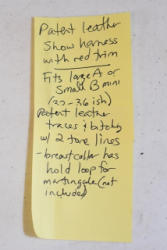 Patent leather
Show harness
with red trim
Fits large A or
Small B mini
(32-36 ish)
Patent leather
traces &
w/ 2 tone lines
- breastcollar has
hold loop for
martingale (not
included